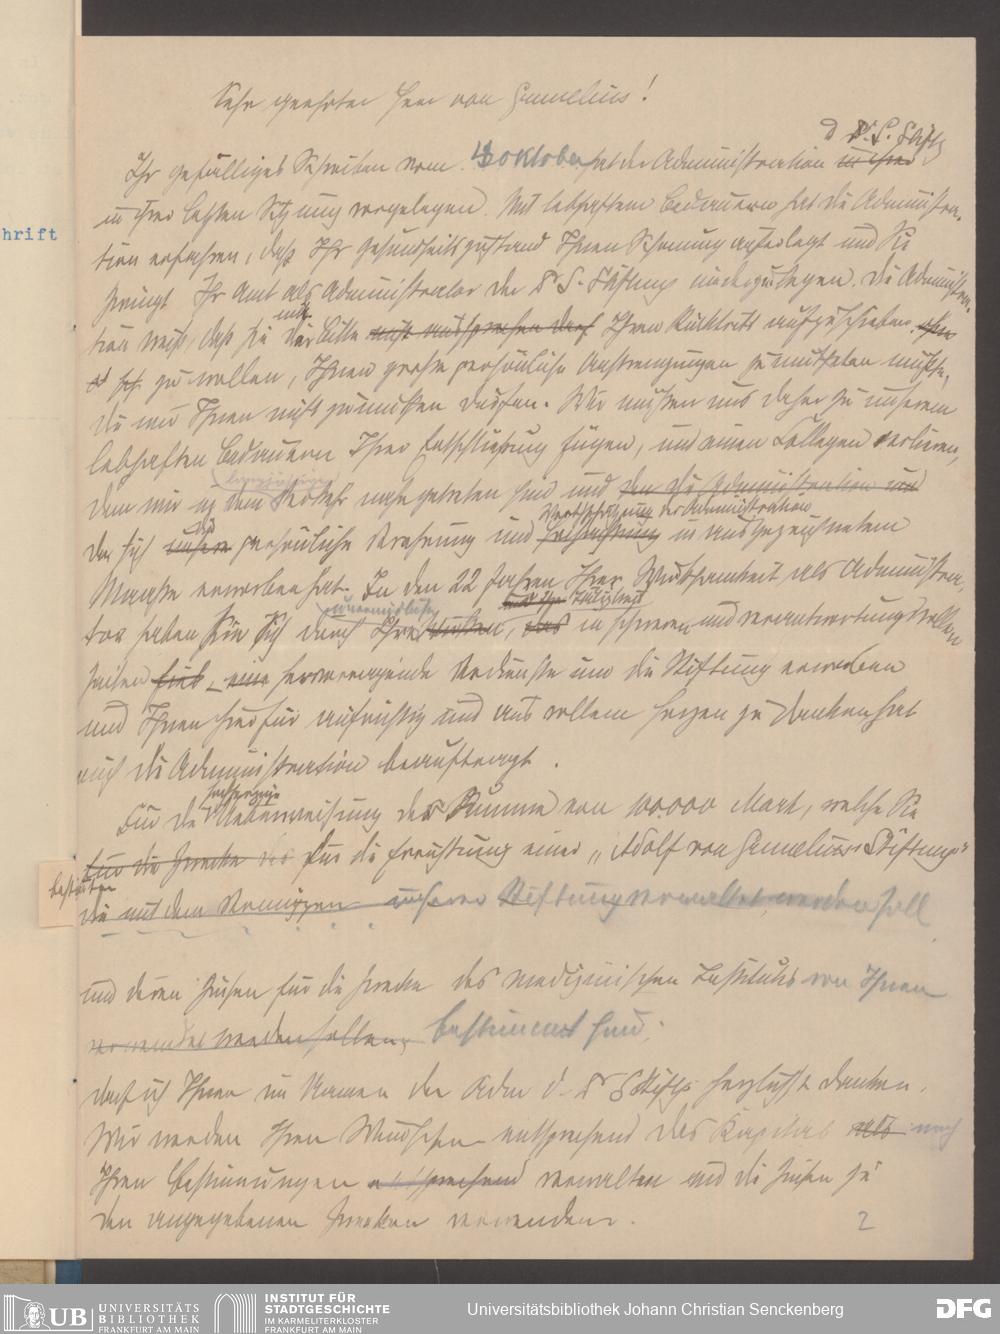 Sehr geehrter Herr von Gwmelius!
d Dr. S. Stiftg
Ihr gefälliges Schreiben vom 4 oktober hat der Administration in ihrer
in ihrer letzten Sitzung vorgelegen. Mit lebhaftem Bedauern hat die Administra-
tion erfahren, daß Ihr Gesundheitszustand Ihnen Schonung auferlegt und Sie
zwingt Ihr Amt als Administrator der Dr S. Stiftung niederzulegen. Die Administra-
tion weiß, daß sie mit der Bitte nicht aussprechen darf Ihren Rücktritt aufzuschieben, ohne
zu wollen, Ihnen große persönliche Anstrengungen zumuthen müßte,
die wir Ihnen nicht zumuthen dürfen. Wir müssen uns daher zu unserem
lebhaften Bedauern Ihrer Entschließung fügen, und einen Collegen verlieren,
dem wir in dem Verkehr nahe getreten sind und den die Administration und
Wertschätzung der Administration
der sich unsere die persönliche Verehrung und in ausgezeichnetem
Maaße erworben hat. In den 22 Jahren Ihrer Wirksamkeit als Administra-
unermüdliche Thätigkeit
tor haben Sie sich durch Ihre in schweren und verantwortungsvollen
Zeiten hervorragende Verdienste um die Stiftung erworben
und Ihnen hierfür aufrichtig und aus vollem Herzen zu danken hat
mich die Administration beauftragt.
hochherzige
Für die Ueberweisung der Summe von 100.000 Mark, welche Sie
für die Zwecke des für die Errichtung einer „Adolf von Gwmelius Stiftung"
bestimmten
die mit dem Vermögen unserer Stiftung verwaltet werden soll
und deren Zinsen für die Zwecke des medizinischen Instituts von Ihnen
verwendet werden sollen, bestimmt sind,
darf ich Ihnen im Namen der Adm d. Dr S Stiftg herzlichst danken.
Wir werden Ihren Wünschen entsprechend das Kapital als nach
Ihren Bestimmungen entsprechend verwalten und die Zinsen zu
den angegebenen Zwecken verwenden.
2
hrift
UB UNIVERSITÄTS
BIBLIOTHEK
FRANKFURT AM MAIN
INSTITUT FÜR
STADTGESCHICHTE
IM KARMELITERKLOSTER
FRANKFURT AM MAIN
Universitätsbibliothek Johann Christian Senckenberg
DFG